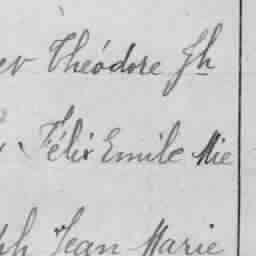 Théodore Jh
Félix Emile Mie
ph Jean Marie